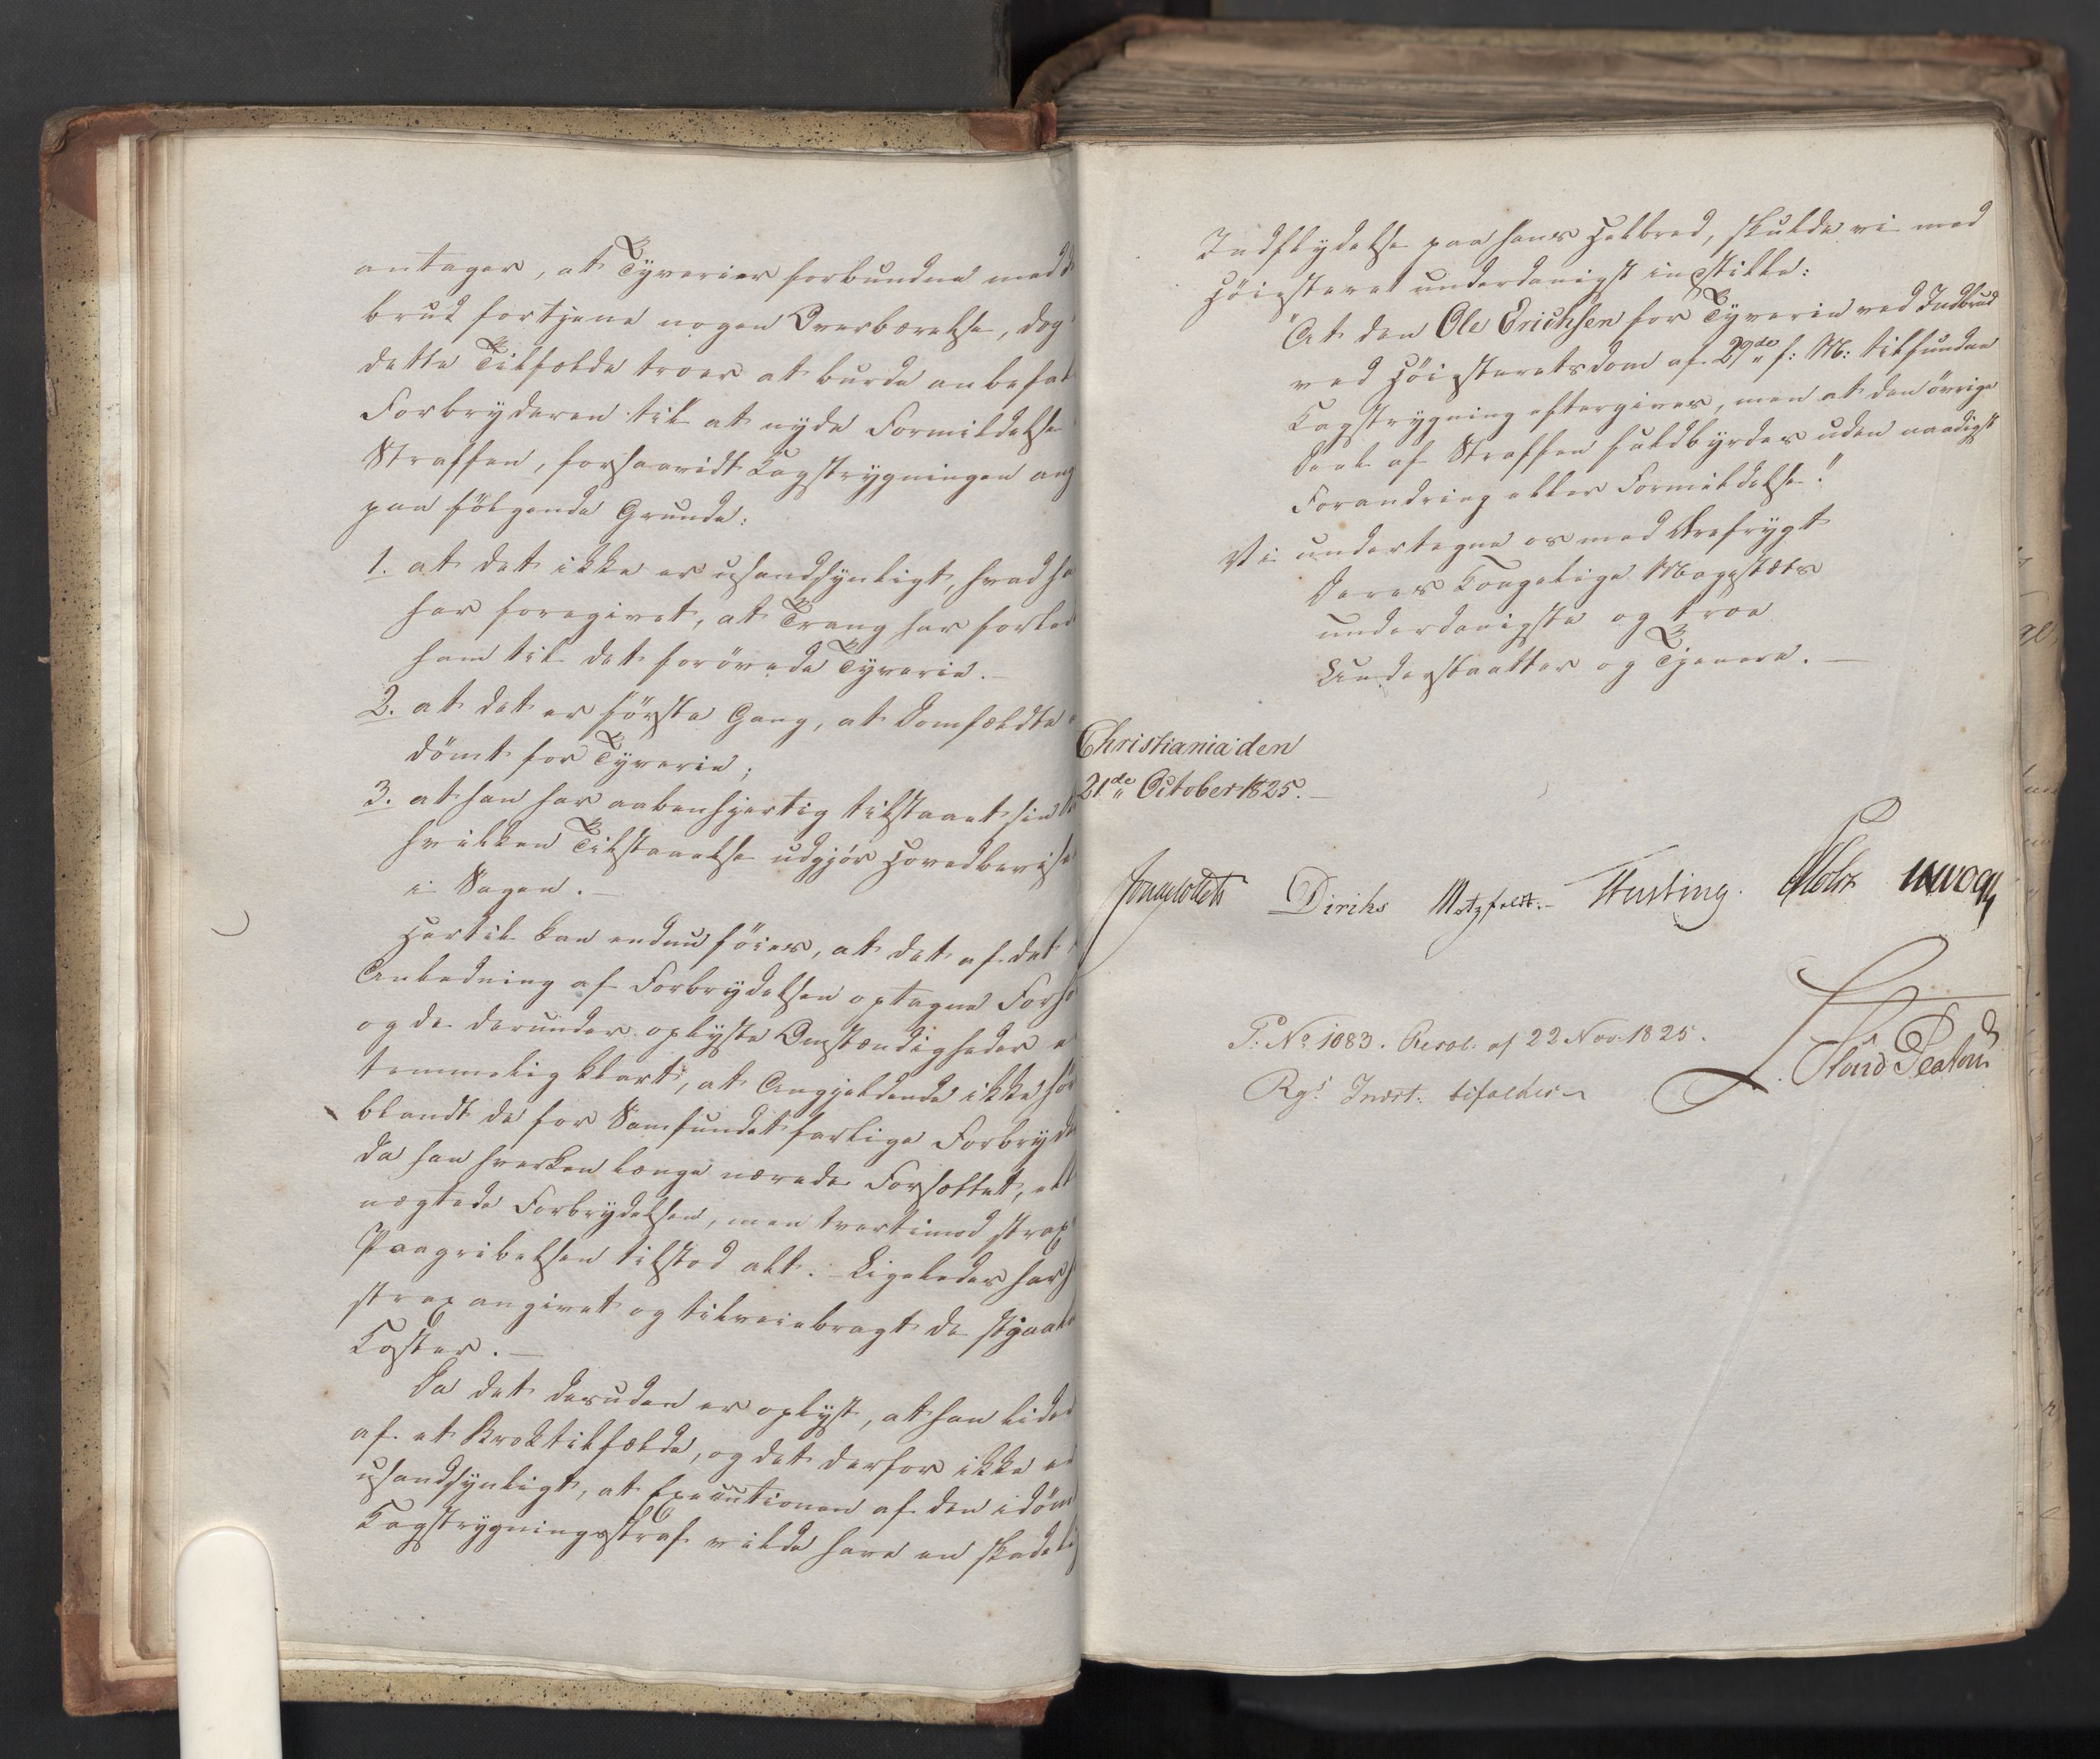 antager, at Tyverier forbundne med
brud fortjene nogen Overbærelse, dog
dette Tilfælde troer at burde anbefal
Forbryderen til at nyde Formildelse
Straffen, forsaavidt Kagstrygningen ang
paa følgende Grunde:
1. at det ikke er usandsynligt, hvad h
har foregivet, at Trang har forled
ham til det forøvede Tyverie.
2. at det er første Gang, at Domfældte
dømt for Tyverie;
3. at han har aabenhjertig tilstaaet sin
hvilken Tilstaaelse udgjør Hovedbevis
i Sagen.
Hertil kan endnu føies, at det af det
Anledning af Forbrydelsen optagne Forh
og de derunder oplyste Omstændigheder
temmelig klart, at Angjeldende ikke hø
blandt de for Samfundet farlige Forbryde
da han hverken længe nærede Forsættet, ell
nægtede Forbrydelsen, men tvertimod strax
Paagribelsen tilstod alt. Ligeledes har h
strax angivet og tilveiebragt de stjaal
Koster.
Da det desuden er oplyst, at han lider
af et Broktilfælde, og det derfor ikke er
usandsynligt, at Executionen af den idøm
Kagstrygningsstraf vilde have en skadeli
Indflydelse paa hans Helbred, skulde vi med
Høiesteret underdanigst indstille:
"At den Ole Erichsen for Tyverie ved Indbrud
ved Høiesteretsdom af 29de f: M: tilfundne
Kagstrygning eftergives, men at den øvrige
Deel af Straffen fuldbyrdes uden naadigst
Forandring eller Formildelse."
Vi undertegne os med Ærefrygt
Deres Kongelige Majestæts
underdanigste og troe
Undersaatter og Tjenere.
Christiania den
21de October 1825.
Diriks Motzfeldt. Fasting. Holst
P. No 1083. Resol. af 22 Nov. 1825.
Rgs Indst. bifaldes